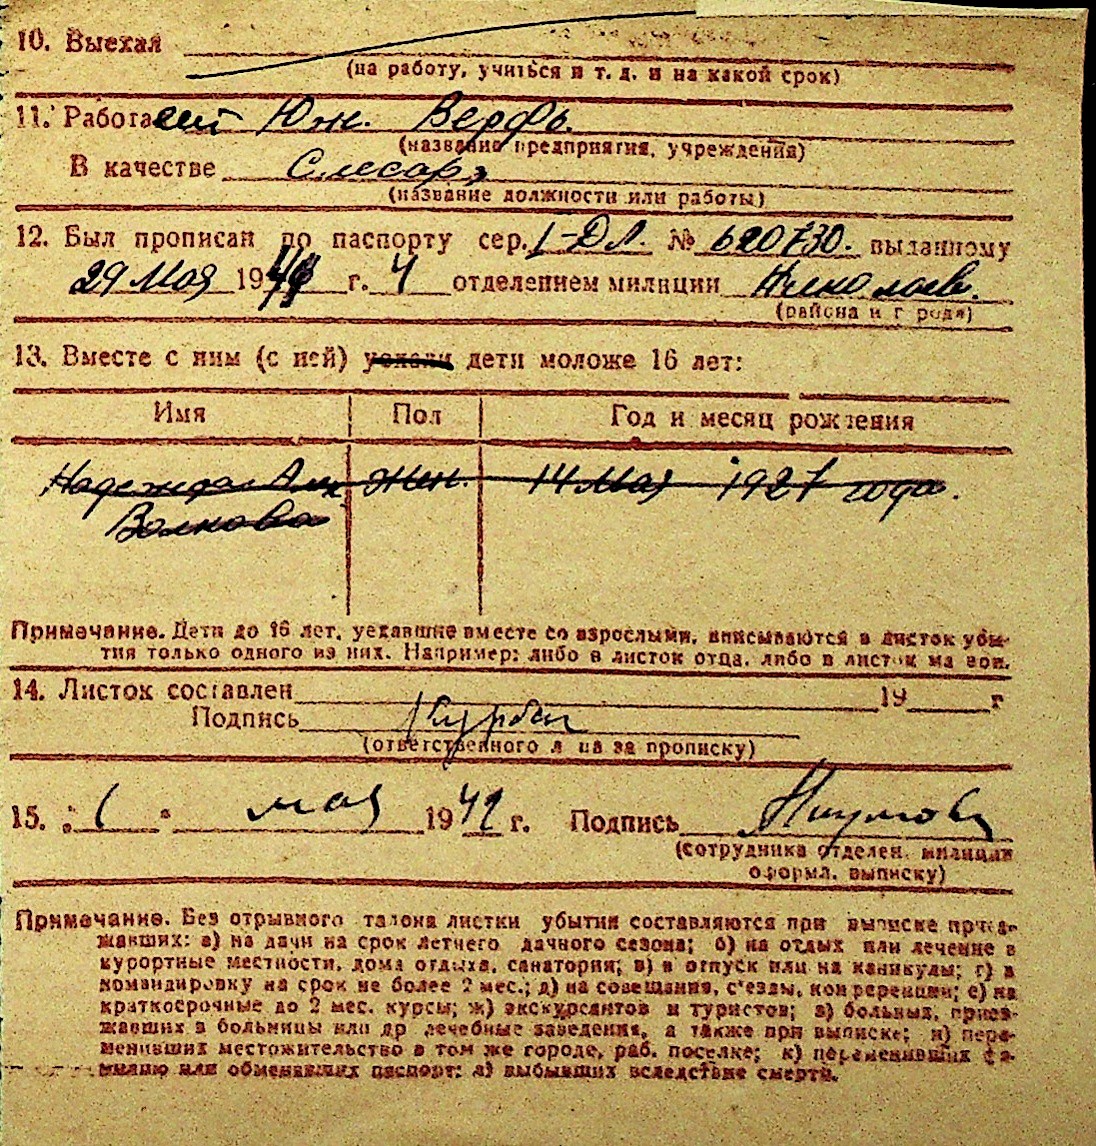 10. Выехал
(на работу, учиться и т. д. и на какой срок)
11. Работает Юж. Верфь.
(название предприятия, учреждения)
В качестве Слесарь
(название должности или работы)
12. Был прописан по паспорту сер. I-ДЛ. № 620730. выданному
29 Мая 19 г. 4 отделением милиции Николаев.
(района и г рода)
13. Вместе с ним (с ней) уехали дети моложе 16 лет:
Имя Пол Год и месяц рождения
Надежда Жен. 14 Мая 1927 года.
Волкова
Примечание. Дети до 16 лет, уехавшие вместе со взрослыми, вписываются в листок убы-
тия только одного из них. Например: либо в листок отца, либо в листок ма ери.
14. Листок составлен 19 г
Подпись
(ответственного л ца за прописку)
15. „1“ мая 1949 г. Подпись
(сотрудника отделен. милиции
оформл. выписку)
Примечание. Без отрывного талона листки убытия составляются при выписке приез-
жавших: а) на дачи на срок летнего дачного сезона; б) на отдых или лечение в
курортные местности, дома отдыха, санатории; в) в отпуск или на каникулы; г) в
командировку на срок не более 2 мес.; д) на совещания, с'езды, конференции; е) на
краткосрочные до 2 мес. курсы; ж) экскурсантов и туристов; з) больных, приез-
жавших в больницы или др лечебные заведения, а также при выписке; и) пере-
менивших местожительство в том же городе, раб. поселке; к) переменивших фа-
милию или обменявших паспорт; л) выбывших вследствие смерти.